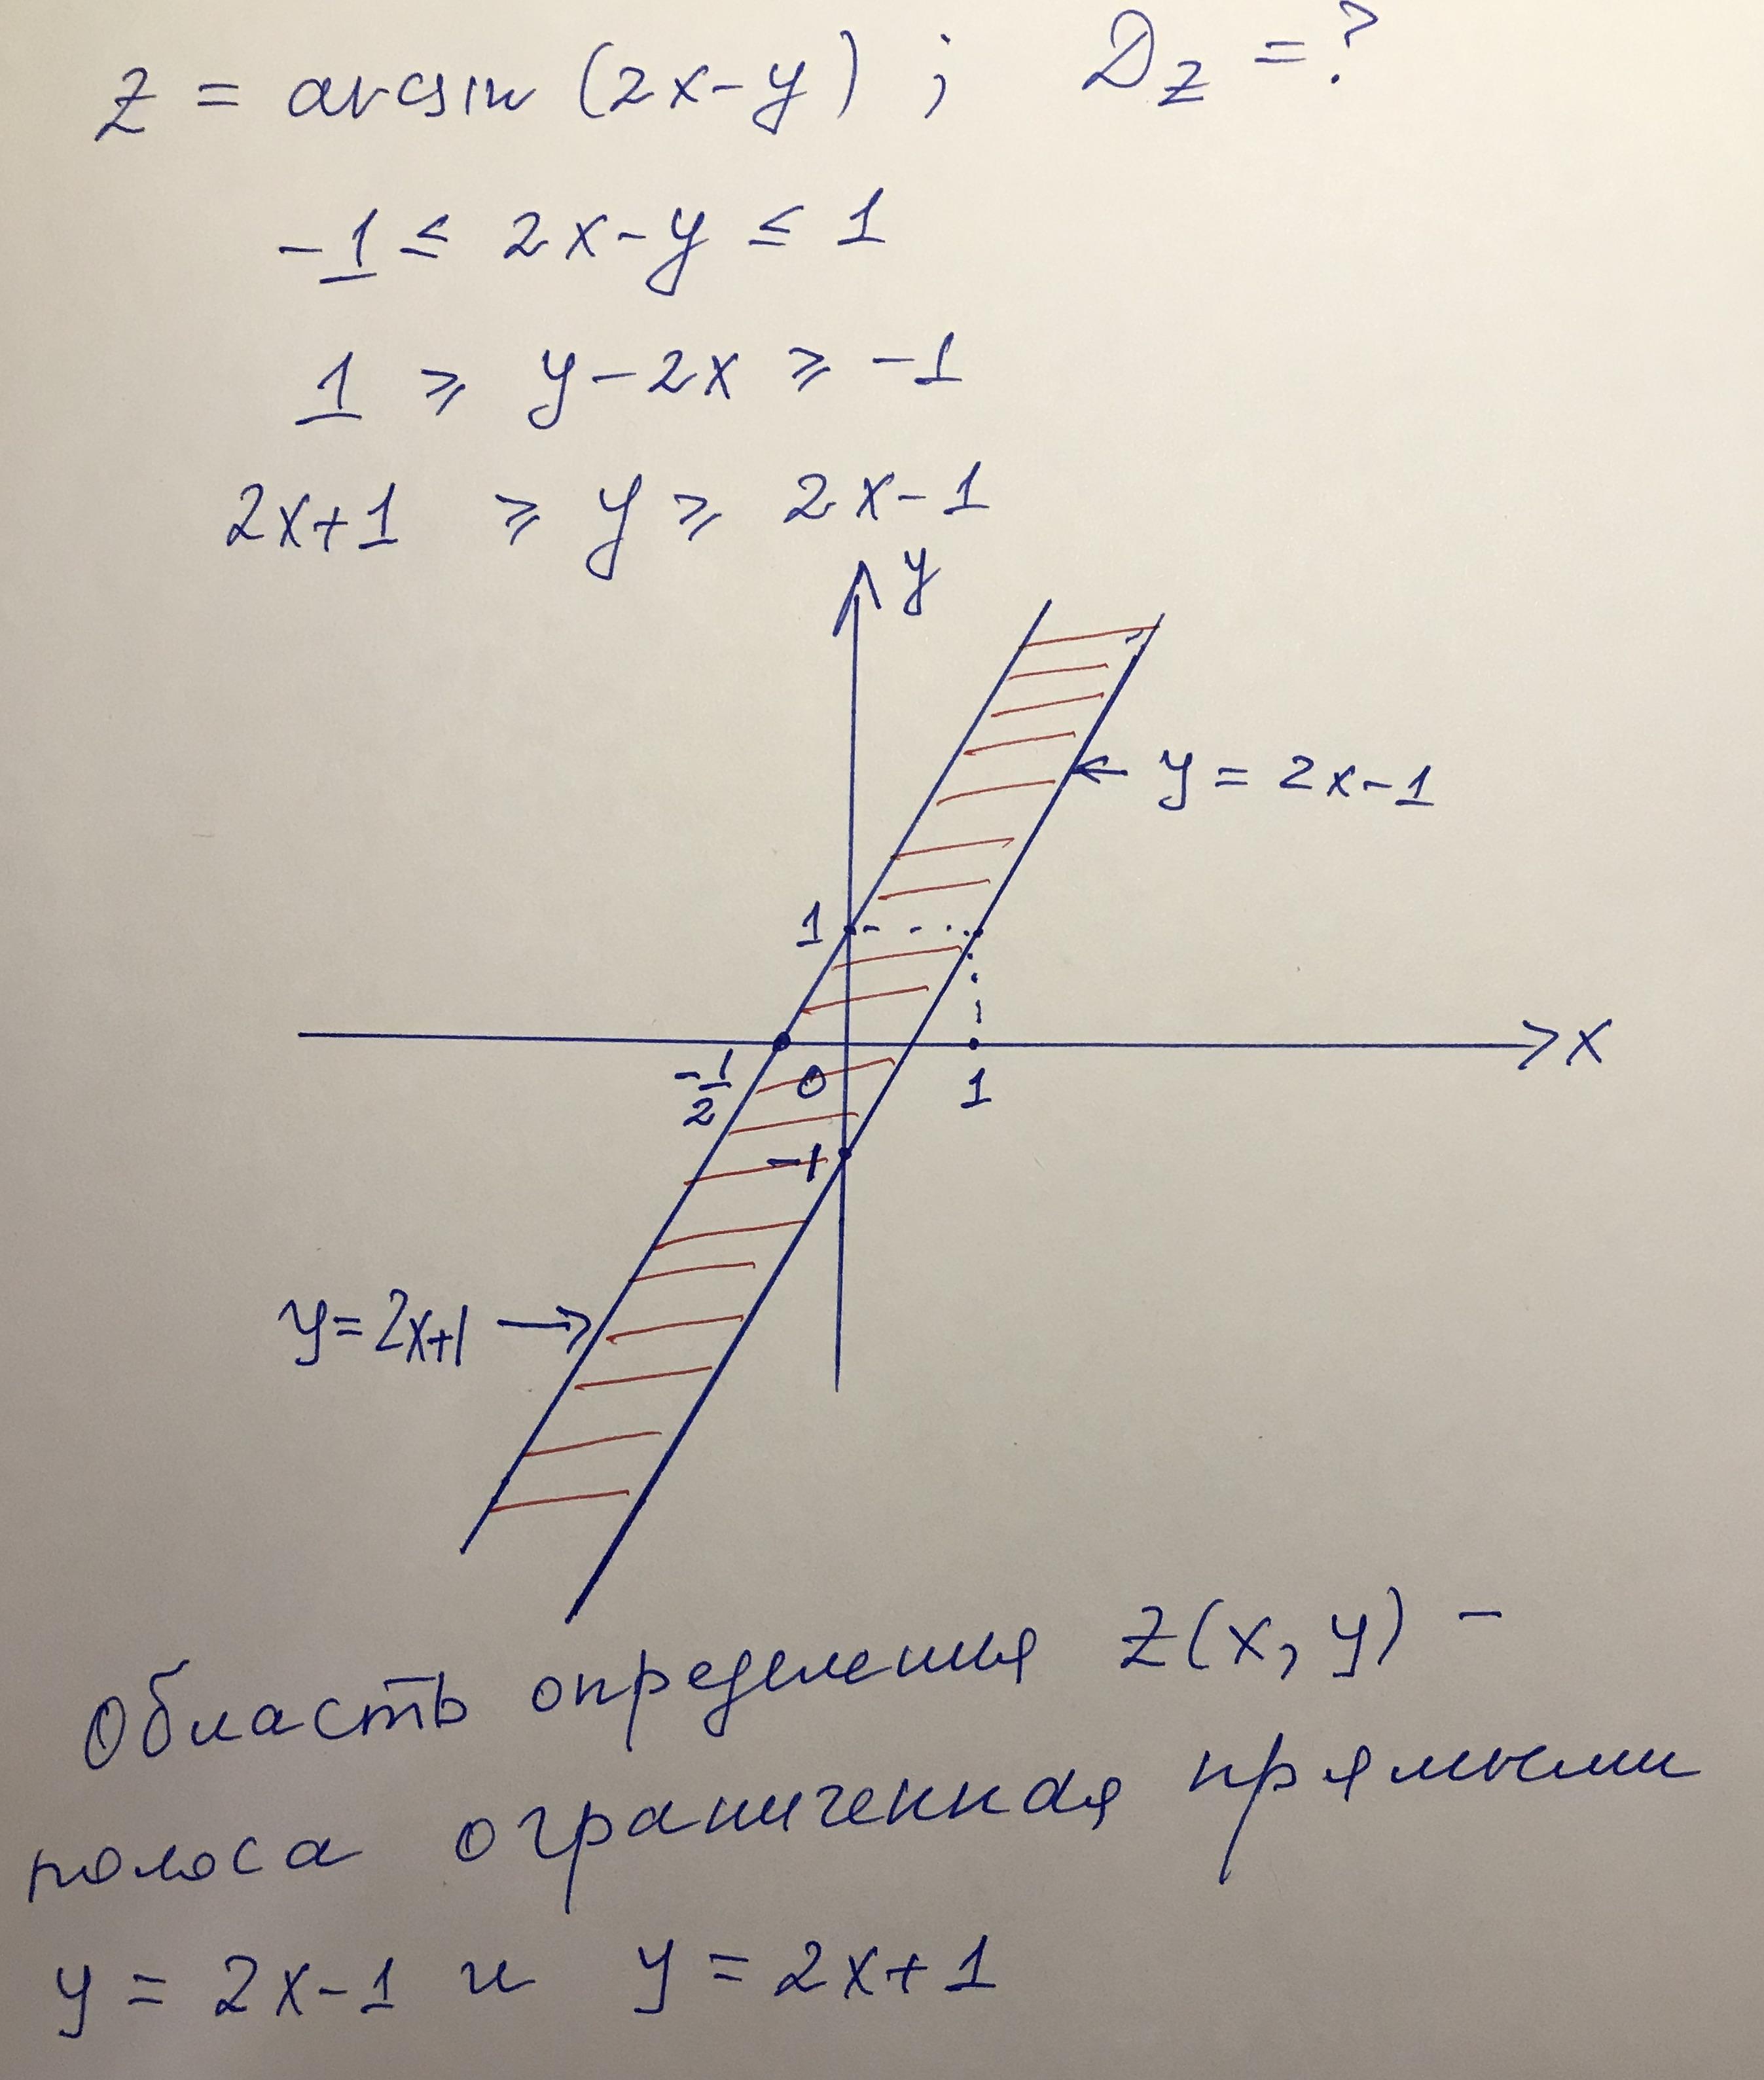 z = arcsin (2x-y) ; D_z = ?
-1 ≤ 2x-y ≤ 1
1 ⩾ y-2x ⩾ -1
2x+1 ⩾ y ⩾ 2x-1
y
y = 2x-1
1
x
-1/2
0
1
-1
y=2x+1
Область определения z(x, y) -
полоса ограниченная прямыми
y = 2x-1 и y = 2x+1